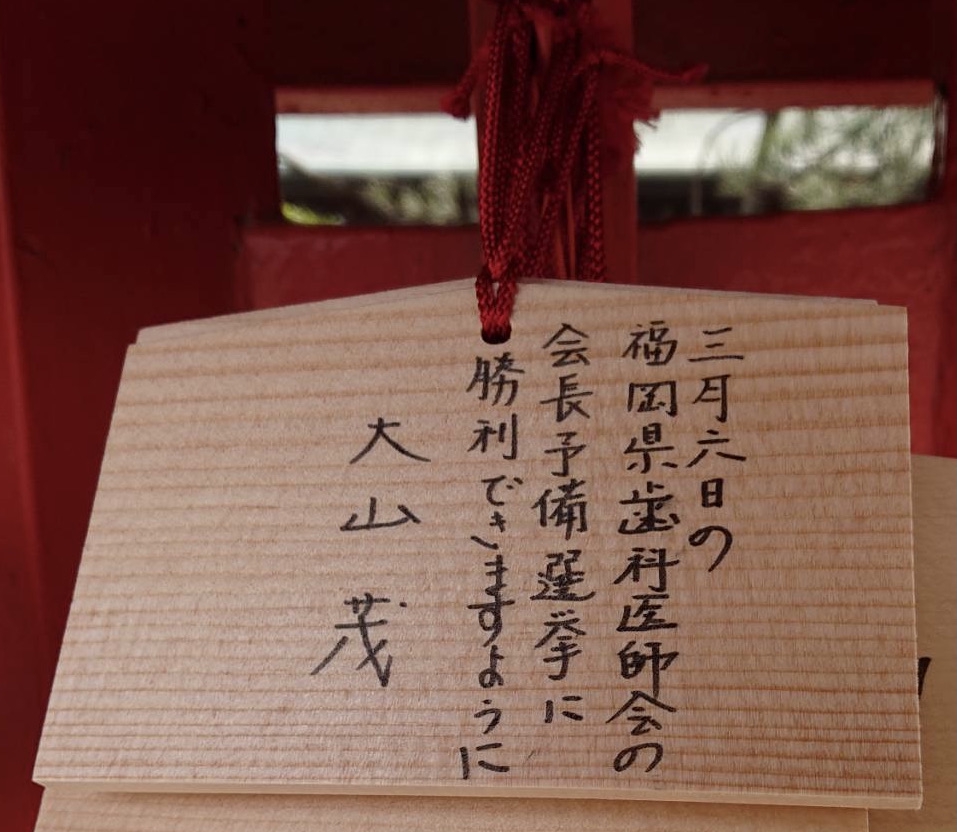 三月六日の
福岡県歯科医師会の
会長予備選挙に
勝利できますように
大山 茂